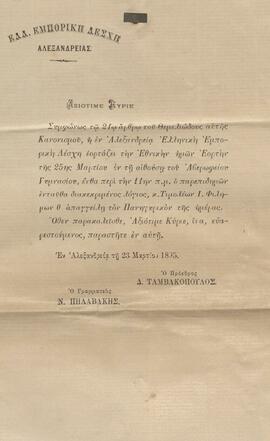 ΕΛΛ. ΕΜΠΟΡΙΚΗ ΛΕΣΧΗ
ΑΛΕΞΑΝΔΡΕΙΑΣ
ΑΞΙΟΤΙΜΕ ΚΥΡΙΕ
Συμφώνως τῷ 21ῳ ἄρθρῳ τοῦ Θεμελιώδους αὐτῆς
Κανονισμοῦ, ἡ ἐν Ἀλεξανδρείᾳ Ἑλληνικὴ Ἐμπο-
ρικὴ Λέσχη ἑορτάζει τὴν Ἐθνικὴν ἡμῶν Ἑορτὴν
τῆς 25ης Μαρτίου ἐν τῇ αἰθούσῃ τοῦ Ἀβερωφείου
Γυμνασίου, ἔνθα περὶ τὴν 11ην π.μ. ὁ παρεπιδημῶν
ἐνταῦθα διακεκριμένος λόγιος, κ. Τιμολέων Ι. Φιλή-
μων θ' ἀπαγγείλῃ τὸν Πανηγυρικὸν τῆς ἡμέρας.
Ὅθεν παρακαλεῖσθε, Ἀξιότιμε Κύριε, ἵνα, εὐα-
ρεστούμενος, παραστῆτε ἐν αὐτῇ.
Ἐν Ἀλεξανδρείᾳ τῇ 23 Μαρτίου
Ὁ Πρόεδρος
Δ. ΤΑΜΒΑΚΟΠΟΥΛΟΣ
Ὁ Γραμματεὺς
Ν. ΠΗΛΑΒΑΚΗΣ